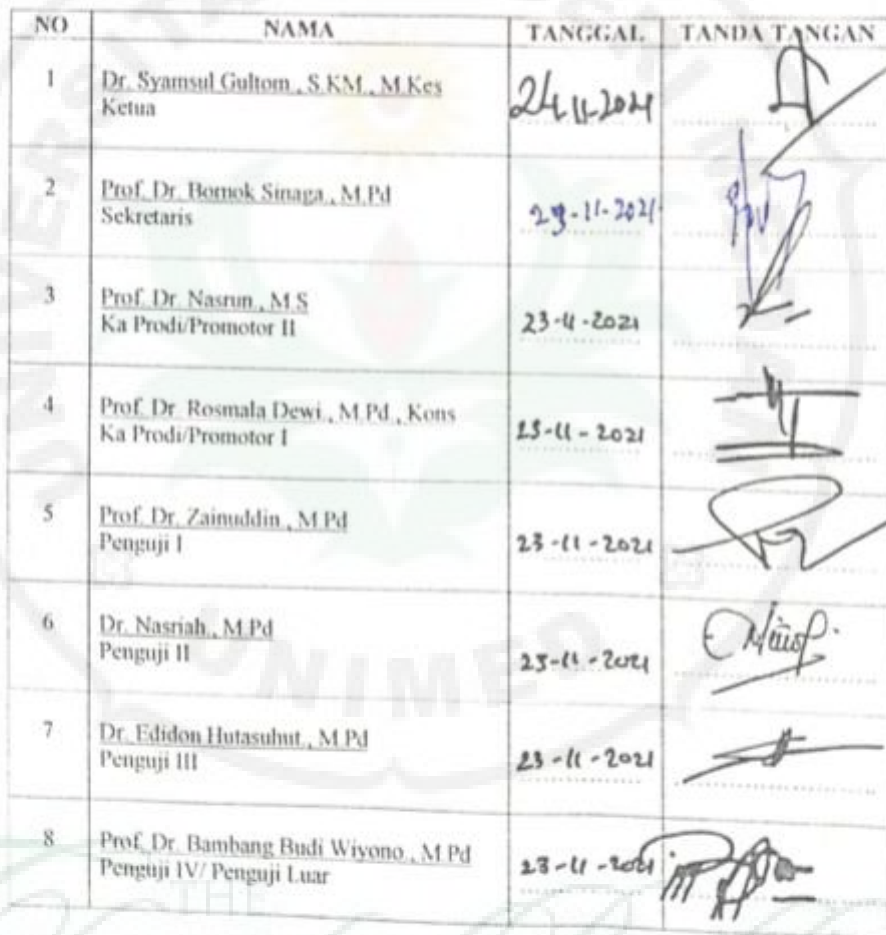 NO NAMA TANGGAL TANDA TANGAN
1 Dr. Syamsul Gultom , S.KM., M.Kes 24-11-2021
Ketua
2 Prof. Dr. Bornok Sinaga , M.Pd
Sekretaris -11-2021
3 Prof. Dr. Nasrun., M.S
Ka Prodi/Promotor II 23-11-2021
4 Prof. Dr. Rosmala Dewi , M.Pd , Kons
Ka Prodi/Promotor I 23-11-2021
5 Prof. Dr. Zainuddin , M.Pd
Penguji I 23-11-2021
6 Dr. Nasriah., M.Pd
Penguji II 23-11-2021
7 Dr. Edidon Hutasuhut., M.Pd
Penguji III 23-11-2021
8 Prof. Dr. Bambang Budi Wiyono , M.Pd
Penguji IV/ Penguji Luar 23-11-2021
UNIMED
THE